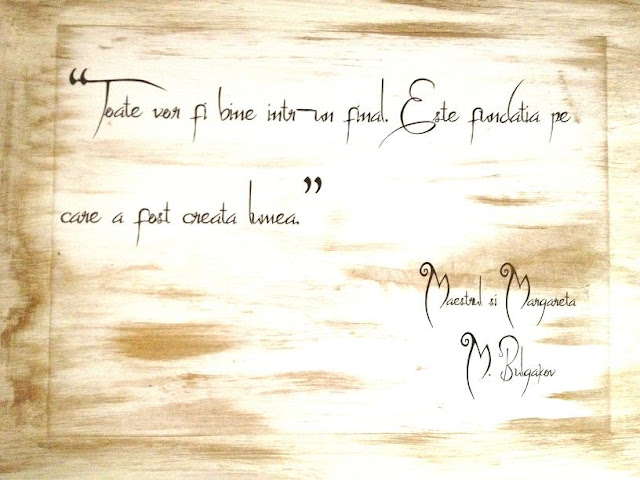 “Toate vor fi bine intr-un final. Este fundatia pe
care a fost creata lumea.”
Maestrul si Margareta
M. Bulgakov